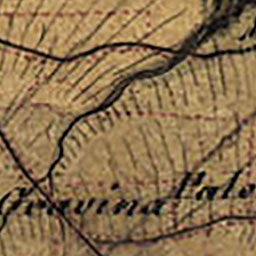 Gravina
Palo